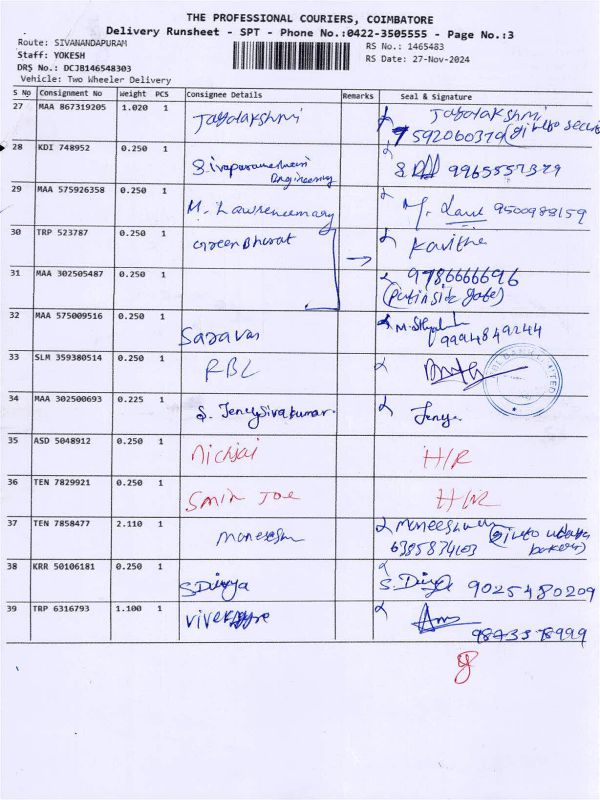 THE PROFESSIONAL COURIERS, COIMBATORE
Delivery Runsheet - SPT - Phone No.:0422-3505555 - Page No.:3
Route: SIVANANDAPURAM
RS No.: 1465483
Staff: YOKESH
RS Date: 27-Nov-2024
DRS No.: DCJB146548303
Vehicle: Two Wheeler Delivery
S No Consignment No Weight PCS Consignee Details Remarks Seal & Signature
27 MAA 867319205 1.020 1 Jayalakshmi Jayalakshmi
7592060379
28 KDI 748952 0.250 1 Sivaparameshwari 9965557379
Engineering
29 MAA 575926358 0.250 1 M. Lawrencemary M. 9500988159
30 TRP 523787 0.250 1 Green Bharat Kavitha
31 MAA 302505487 0.250 1 9786666696
(Put inside gate)
32 MAA 575009516 0.250 1 Saravan 9994849244
33 SLM 359380514 0.250 1 RBL
34 MAA 302500693 0.225 1 S. Jencysivakumar. Jency
35 ASD 5048912 0.250 1 H/R
36 TEN 7829921 0.250 1 Smin Joe
37 TEN 7858477 2.110 1 Maneesh
6385874103
38 KRR 50106181 0.250 1 S Divya S. Divya 9025480209
39 TRP 6316793 1.100 1